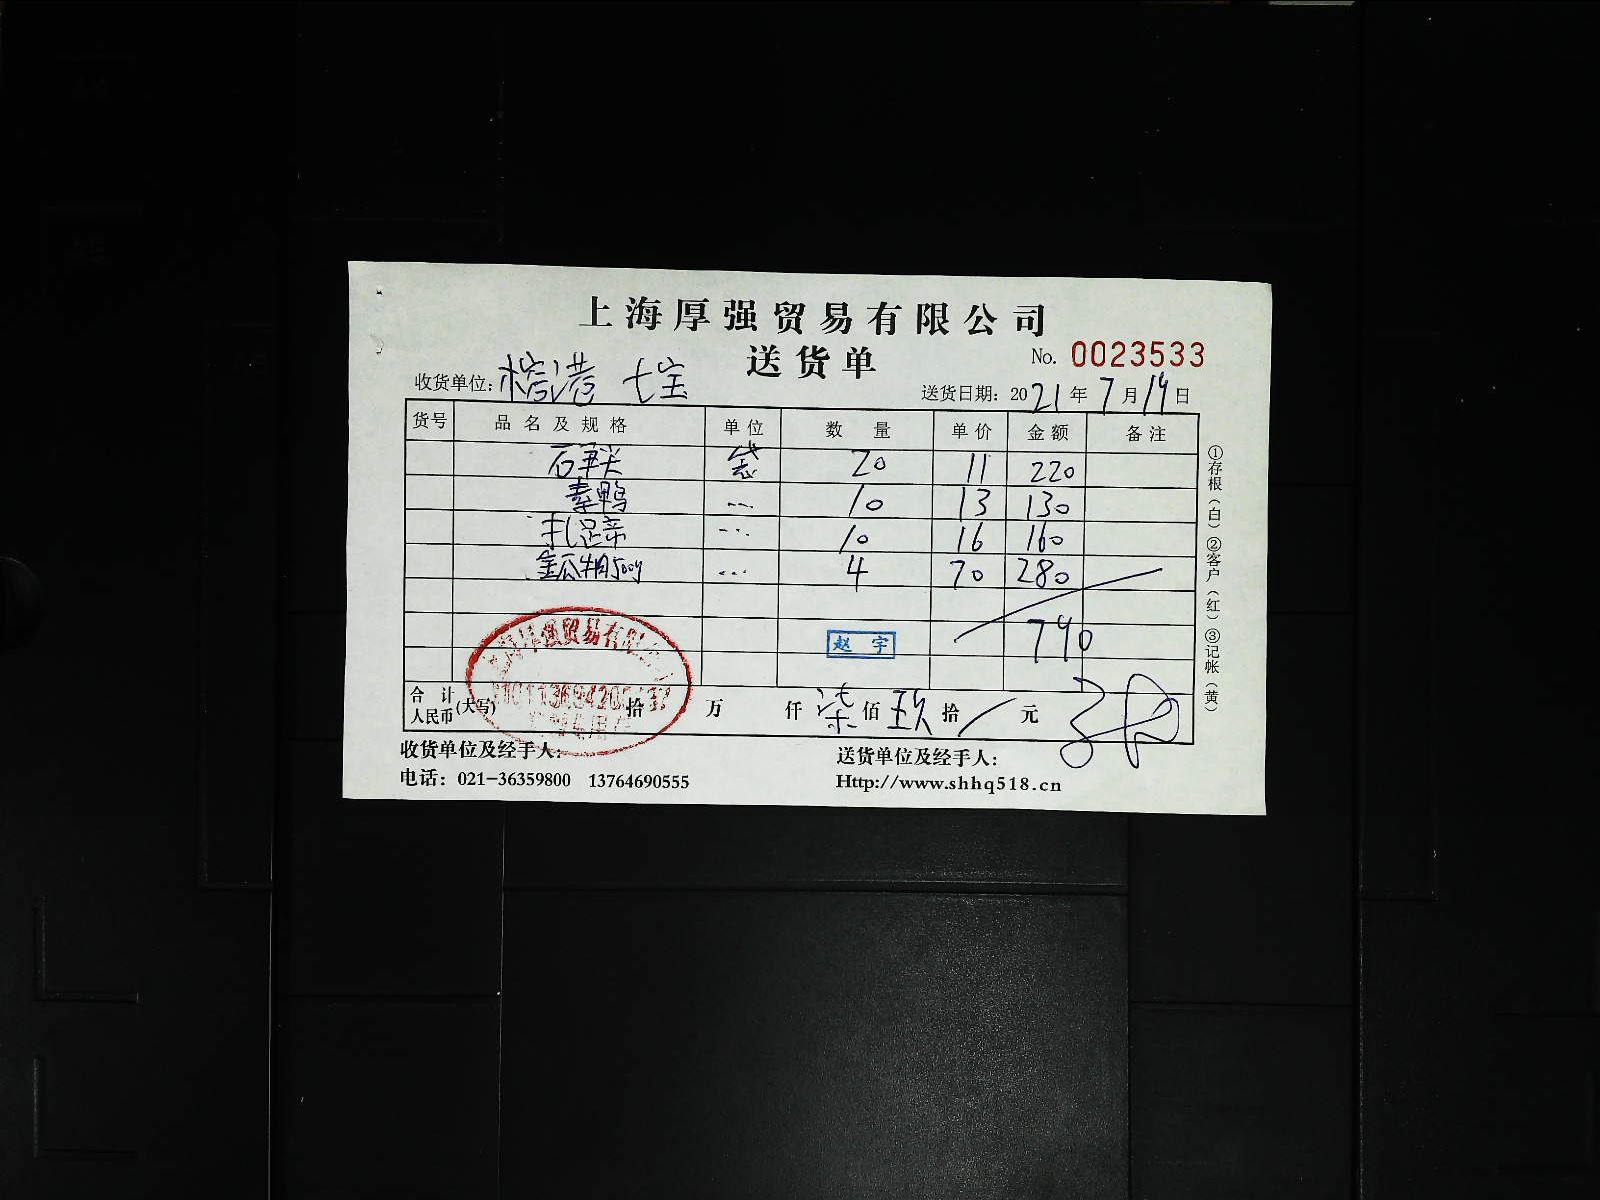 上海厚强贸易有限公司
送货单
No. 0023533
收货单位: 榕港 七宝
送货日期: 2021年7月19日
货号 品名及规格 单位 数量 单价 金额 备注
袋 20 11 220
素鸭 10 13 130
扎足帝 10 16 160
金瓜 500g 4 70 280
790
赵宇
贸易有限
合计人民币(大写) 拾 万 仟 柒 佰 玖 拾 元
收货单位及经手人:
送货单位及经手人:
电话: 021-36359800 13764690555
Http://www.shhq518.cn
①存根(白)②客户(红)③记帐(黄)